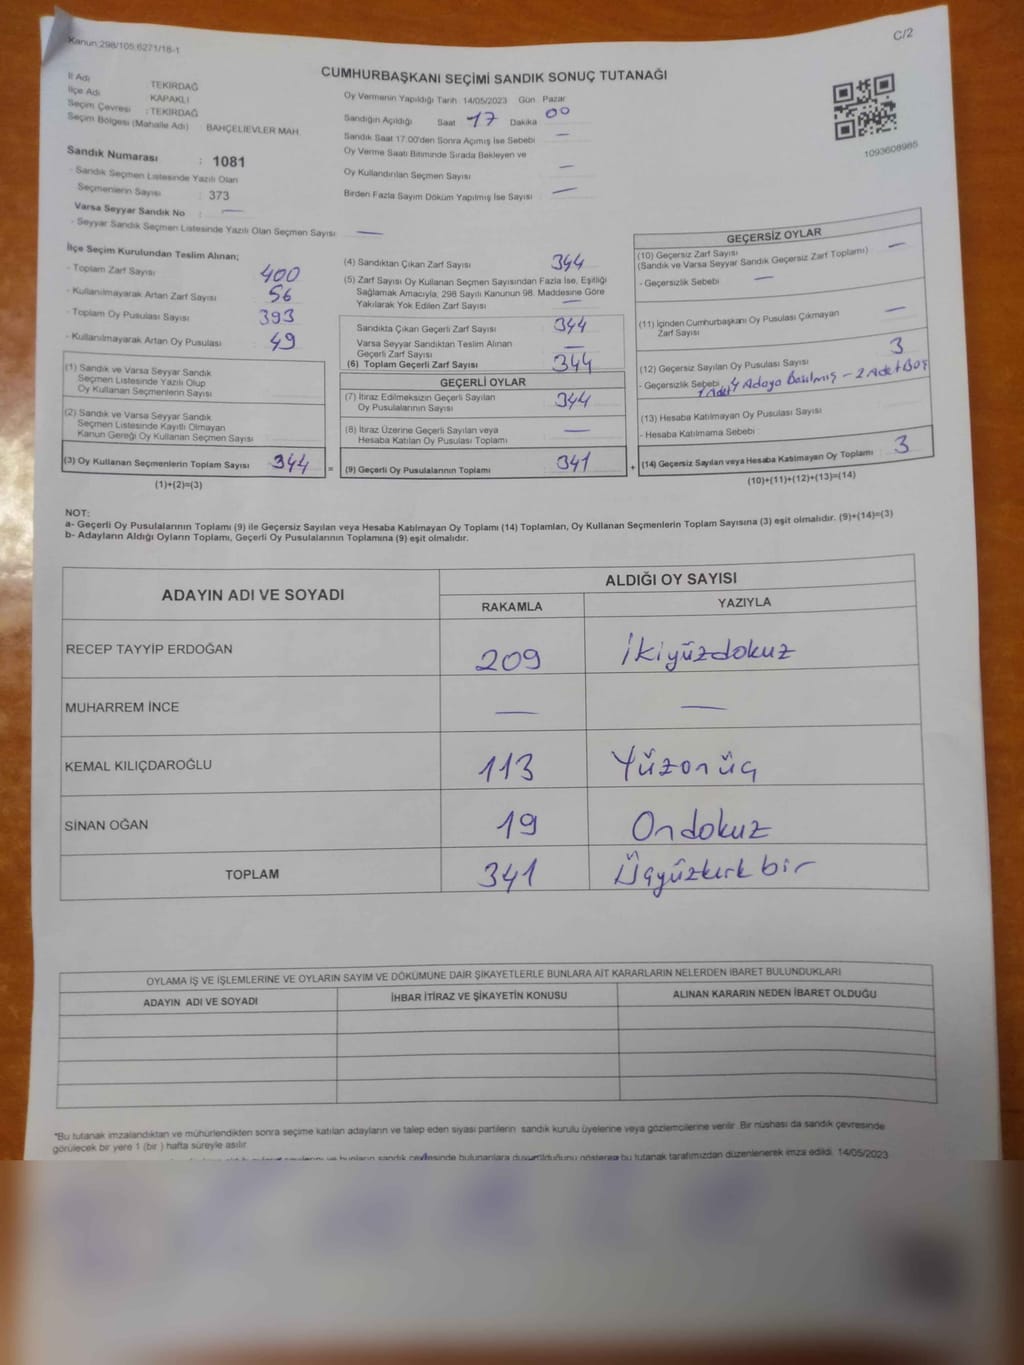 Kanun:298/105;6271/18-1
C/2
CUMHURBAŞKANI SEÇİMİ SANDIK SONUÇ TUTANAĞI
İl Adı TEKİRDAĞ
İlçe Adı KAPAKLI
Seçim Çevresi : TEKİRDAĞ
Seçim Bölgesi (Mahalle Adı) : BAHÇELİEVLER MAH.
Sandık Numarası : 1081
- Sandık Seçmen Listesinde Yazılı Olan
Seçmenlerin Sayısı : 373
Varsa Seyyar Sandık No : —
- Seyyar Sandık Seçmen Listesinde Yazılı Olan Seçmen Sayısı —
Oy Vermenin Yapıldığı Tarih 14/05/2023 Gün Pazar
Sandığın Açıldığı Saat 17 Dakika 00
Sandık Saat 17:00'den Sonra Açımış İse Sebebi —
Oy Verme Saati Bitiminde Sırada Bekleyen ve
Oy Kullandırılan Seçmen Sayısı —
Birden Fazla Sayım Döküm Yapılmış İse Sayısı —
1093608985
İlçe Seçim Kurulundan Teslim Alınan;
- Toplam Zarf Sayısı 400
- Kullanılmayarak Artan Zarf Sayısı 56
- Toplam Oy Pusulası Sayısı 393
- Kullanılmayarak Artan Oy Pusulası 49
(1) Sandık ve Varsa Seyyar Sandık
Seçmen Listesinde Yazılı Olup
Oy Kullanan Seçmenlerin Sayısı
(2) Sandık ve Varsa Seyyar Sandık
Seçmen Listesinde Kayıtlı Olmayan
Kanun Gereği Oy Kullanan Seçmen Sayısı
(3) Oy Kullanan Seçmenlerin Toplam Sayısı 344
(1)+(2)=(3)
(4) Sandıktan Çıkan Zarf Sayısı 344
(5) Zarf Sayısı Oy Kullanan Seçmen Sayısından Fazla İse, Eşitliği
Sağlamak Amacıyla, 298 Sayılı Kanunun 98. Maddesine Göre
Yakılarak Yok Edilen Zarf Sayısı —
Sandıkta Çıkan Geçerli Zarf Sayısı 344
Varsa Seyyar Sandıktan Teslim Alınan
Geçerli Zarf Sayısı —
(6) Toplam Geçerli Zarf Sayısı 344
GEÇERLİ OYLAR
(7) İtiraz Edilmeksizin Geçerli Sayılan
Oy Pusulalarının Sayısı 344
(8) İtiraz Üzerine Geçerli Sayılan veya
Hesaba Katılan Oy Pusulası Toplamı —
= (9) Geçerli Oy Pusulalarının Toplamı 341
GEÇERSİZ OYLAR
(10) Geçersiz Zarf Sayısı —
(Sandık ve Varsa Seyyar Sandık Geçersiz Zarf Toplamı)
- Geçersizlik Sebebi —
(11) İçinden Cumhurbaşkanı Oy Pusulası Çıkmayan
Zarf Sayısı —
(12) Geçersiz Sayılan Oy Pusulası Sayısı 3
- Geçersizlik Sebebi 1 Adet 4 Adaya Basılmış - 2 Adet Boş
(13) Hesaba Katılmayan Oy Pusulası Sayısı
- Hesaba Katılmama Sebebi :
+ (14) Geçersiz Sayılan veya Hesaba Katılmayan Oy Toplamı 3
(10)+(11)+(12)+(13)=(14)
NOT:
a- Geçerli Oy Pusulalarının Toplamı (9) ile Geçersiz Sayılan veya Hesaba Katılmayan Oy Toplamı (14) Toplamları, Oy Kullanan Seçmenlerin Toplam Sayısına (3) eşit olmalıdır. (9)+(14)=(3)
b- Adayların Aldığı Oyların Toplamı, Geçerli Oy Pusulalarının Toplamına (9) eşit olmalıdır.
ADAYIN ADI VE SOYADI ALDIĞI OY SAYISI
RAKAMLA YAZIYLA
RECEP TAYYİP ERDOĞAN 209 İkiyüzdokuz
MUHARREM İNCE — —
KEMAL KILIÇDAROĞLU 113 Yüzonüç
SİNAN OĞAN 19 Ondokuz
TOPLAM 341 Üçyüzkırkbir
OYLAMA İŞ VE İŞLEMLERİNE VE OYLARIN SAYIM VE DÖKÜMÜNE DAİR ŞİKAYETLERLE BUNLARA AİT KARARLARIN NELERDEN İBARET BULUNDUKLARI
ADAYIN ADI VE SOYADI İHBAR İTİRAZ VE ŞİKAYETİN KONUSU ALINAN KARARIN NEDEN İBARET OLDUĞU
"Bu tutanak imzalandıktan ve mühürlendikten sonra seçime katılan adayların ve talep eden siyasi partilerin sandık kurulu üyelerine veya gözlemcilerine verilir. Bir nüshası da sandık çevresinde
görülecek bir yere 1 (bir) hafta süreyle asılır.
bunların sandık çevresinde bulunanlara duyurulduğunu gösteren bu tutanak tarafımızdan düzenlenerek imza edildi. 14/05/2023